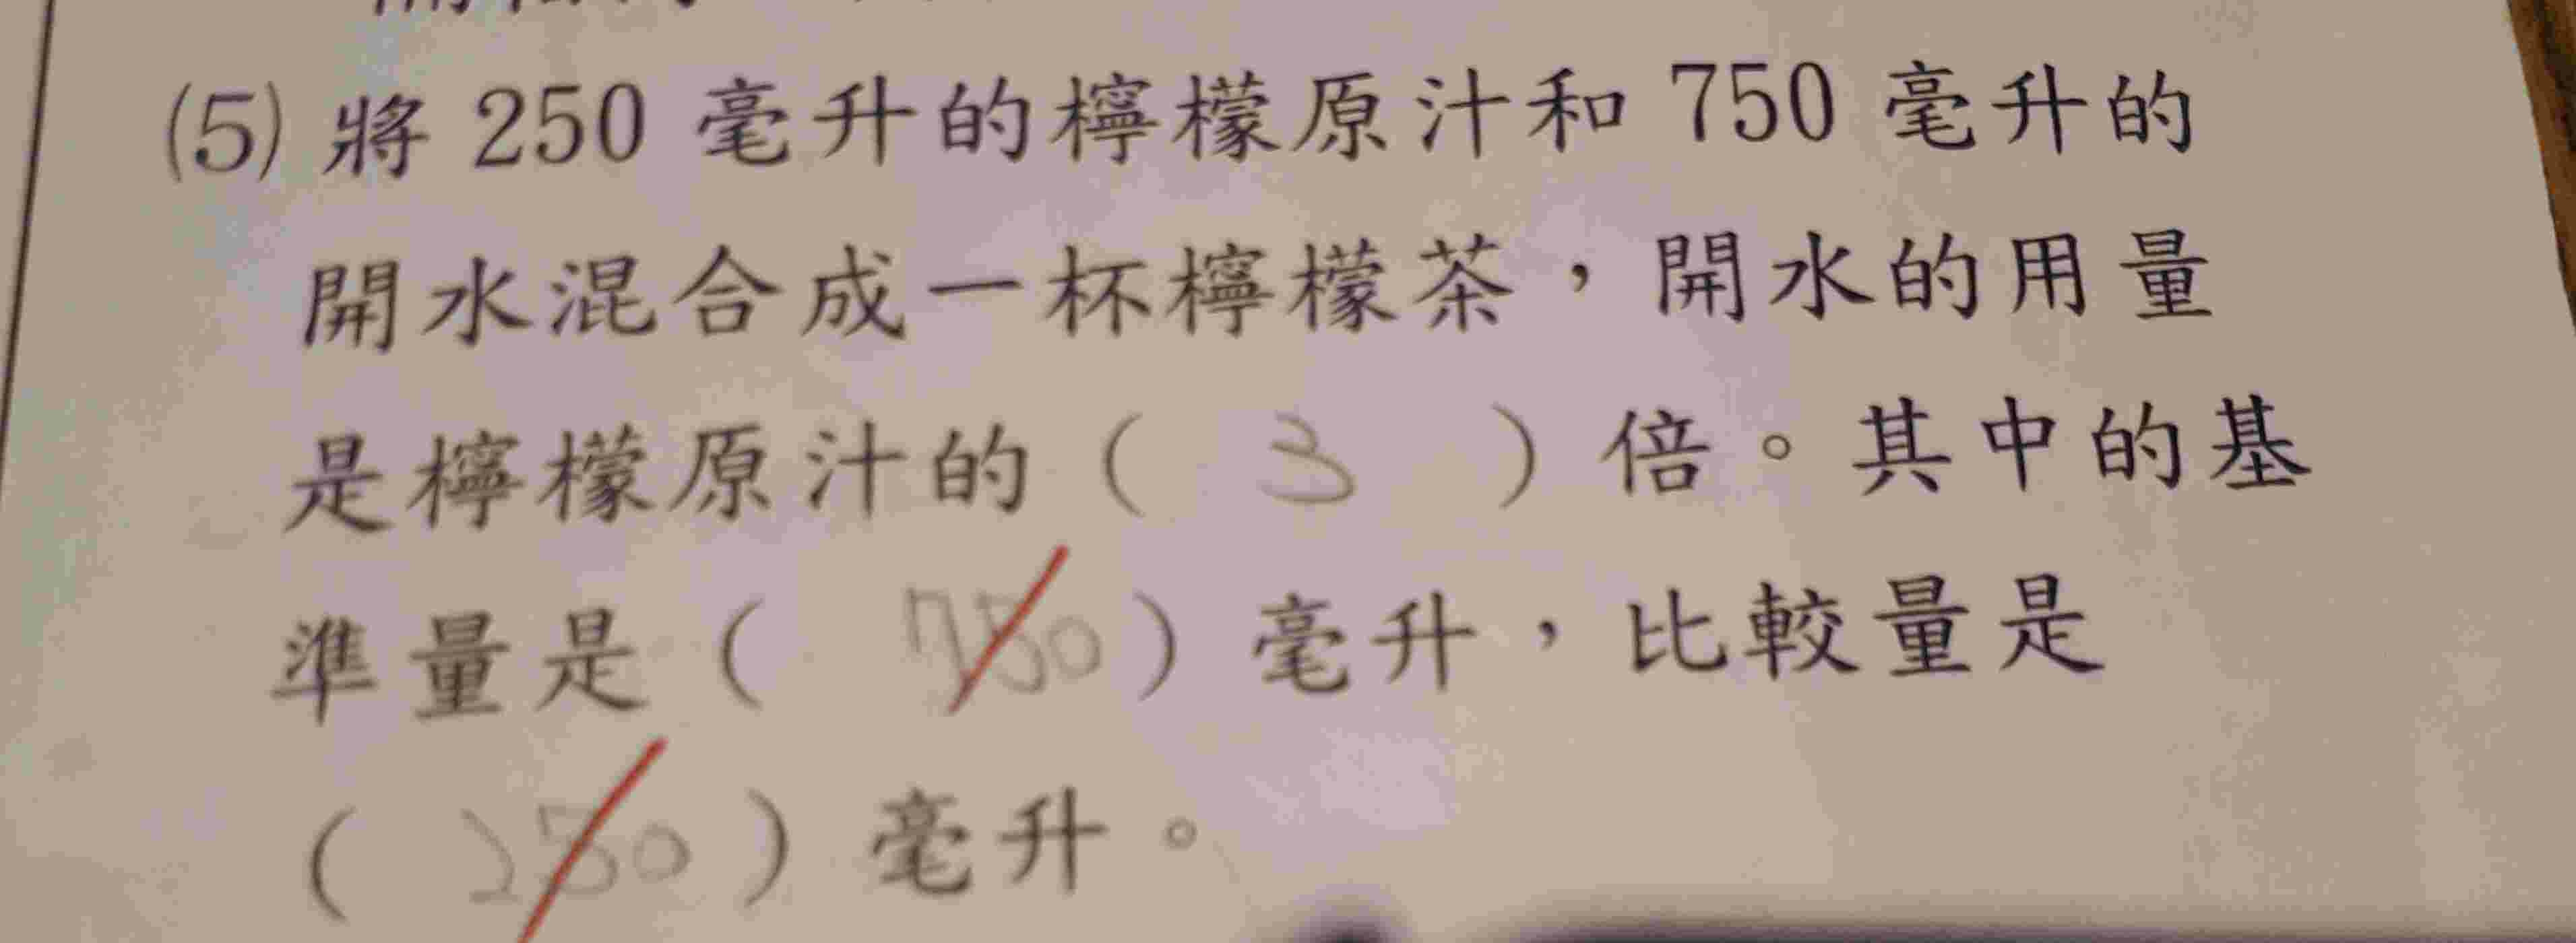 (5) 將 250 毫升的檸檬原汁和 750 毫升的
開水混合成一杯檸檬茶，開水的用量
是檸檬原汁的（ 3 ）倍。其中的基
準量是（ 750 ）毫升，比較量是
（ 250 ）毫升。